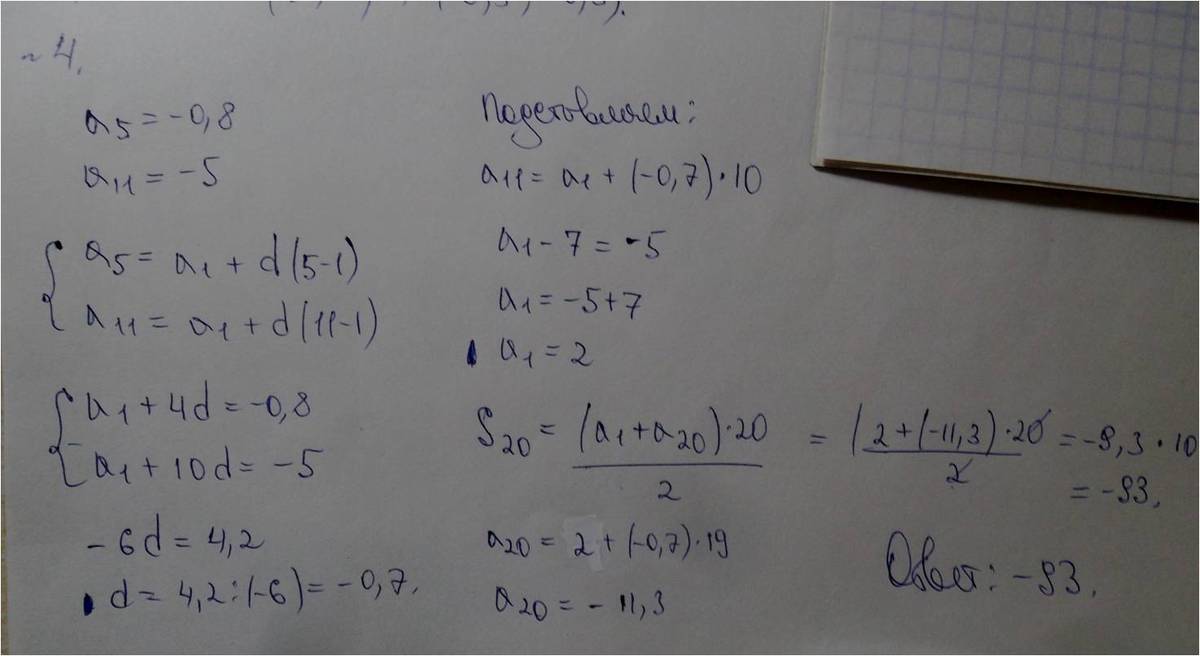 №4.
a5 = -0,8
a11 = -5
{ a5 = a1 + d(5-1)
a11 = a1 + d(11-1)
{ a1 + 4d = -0,8
a1 + 10d = -5
-6d = 4,2
d = 4,2:(-6) = -0,7.
Подставляем:
a11 = a1 + (-0,7)·10
a1 - 7 = -5
a1 = -5+7
a1 = 2
S20 = (a1+a20)·20 / 2 = (2+(-11,3)·20 / 2 = -9,3·10
= -93.
a20 = 2 + (-0,7)·19
a20 = -11,3
Ответ: -93.